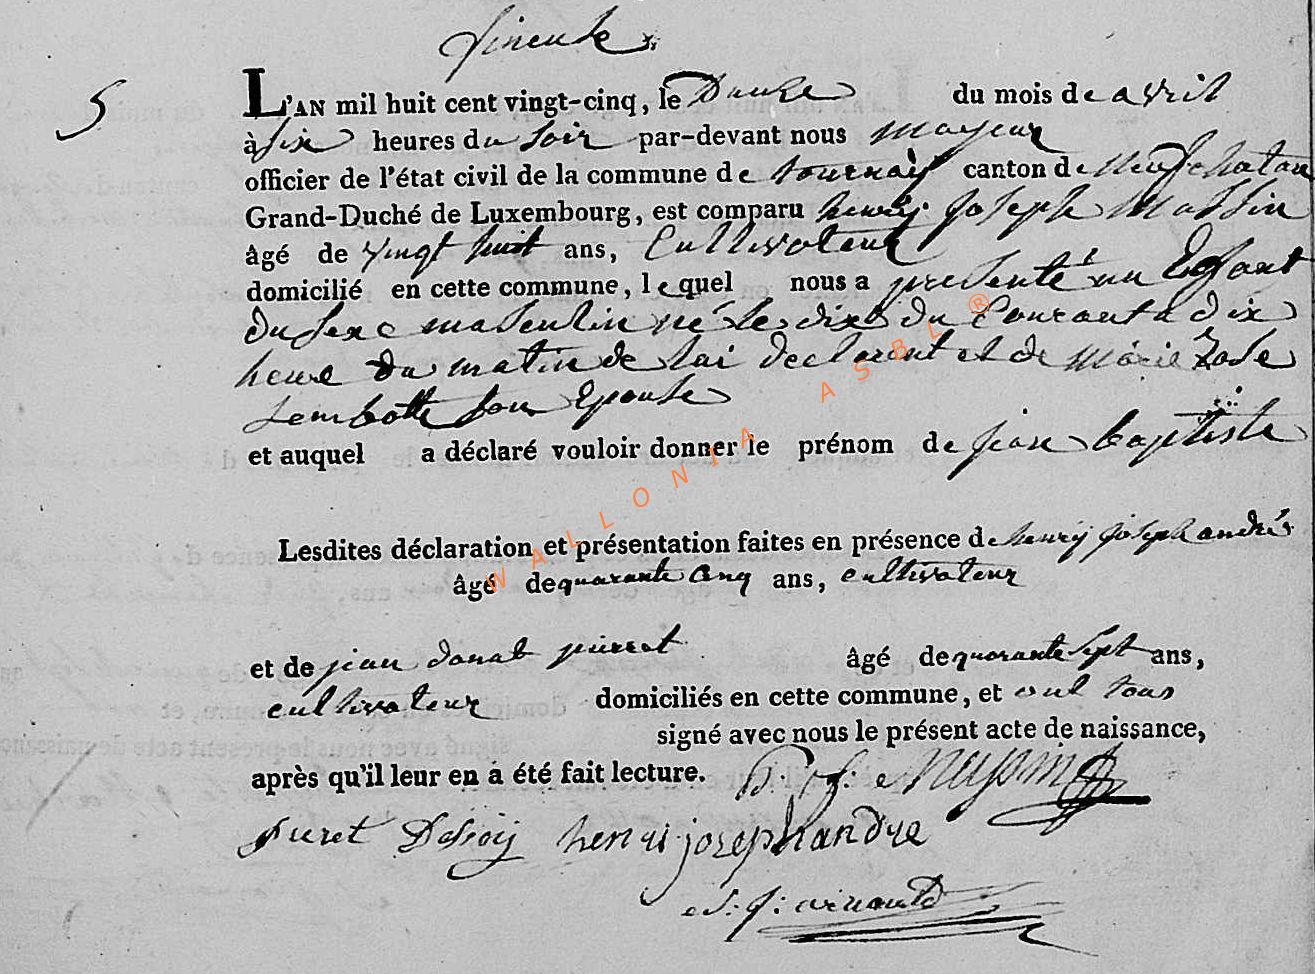 5
L'AN mil huit cent vingt-cinq, le Douze du mois de avril
à six heures du soir par-devant nous mayeur
officier de l'état civil de la commune de tournay canton de Neufchateau
Grand-Duché de Luxembourg, est comparu henry Joseph Massin
âgé de vingt huit ans, Cultivateur
domicilié en cette commune, lequel nous a presenté un Enfant
du sexe masculin né le dix du Courant a dix
heure du matin de lui declarant et de Marie Rose
Lembotte son Epouse
et auquel a déclaré vouloir donner le prénom de jean baptiste
Lesdites déclaration et présentation faites en présence de henry joseph andré
âgé de quarante cinq ans, cultivateur
et de jean donat pierret âgé de quarante sept ans,
cultivateur domiciliés en cette commune, et ont tous
signé avec nous le présent acte de naissance,
après qu'il leur en a été fait lecture.
henri joseph andre
WALLONIA ASBL ®